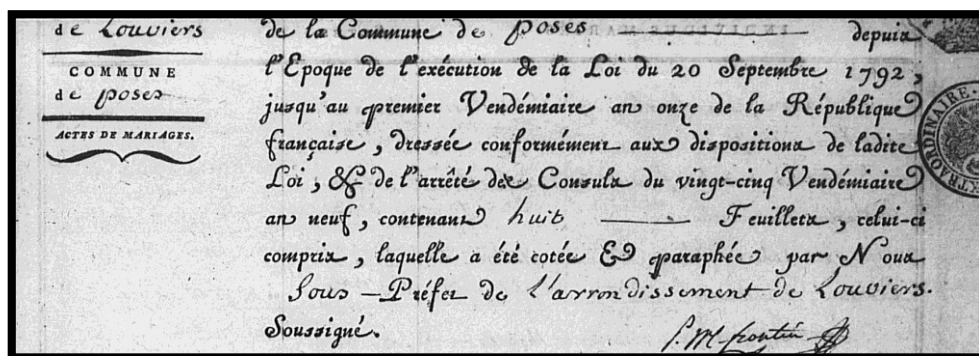 de Louviers
COMMUNE
de poses
ACTES DE MARIAGES.
de la Commune de poses depuis
l'Epoque de l'exécution de la Loi du 20 Septembre 1792,
jusqu'au premier Vendémiaire an onze de la République
française, dressée conformément aux dispositions de ladite
Loi, & de l'arrêté des Consuls du vingt-cinq Vendémiaire
an neuf, contenant huit Feuillets, celui-ci
compris, laquelle a été cotée & paraphée par Nous
Sous-Préfet de l'arrondissement de Louviers.
Soussigné.
TRAORDINAIRE